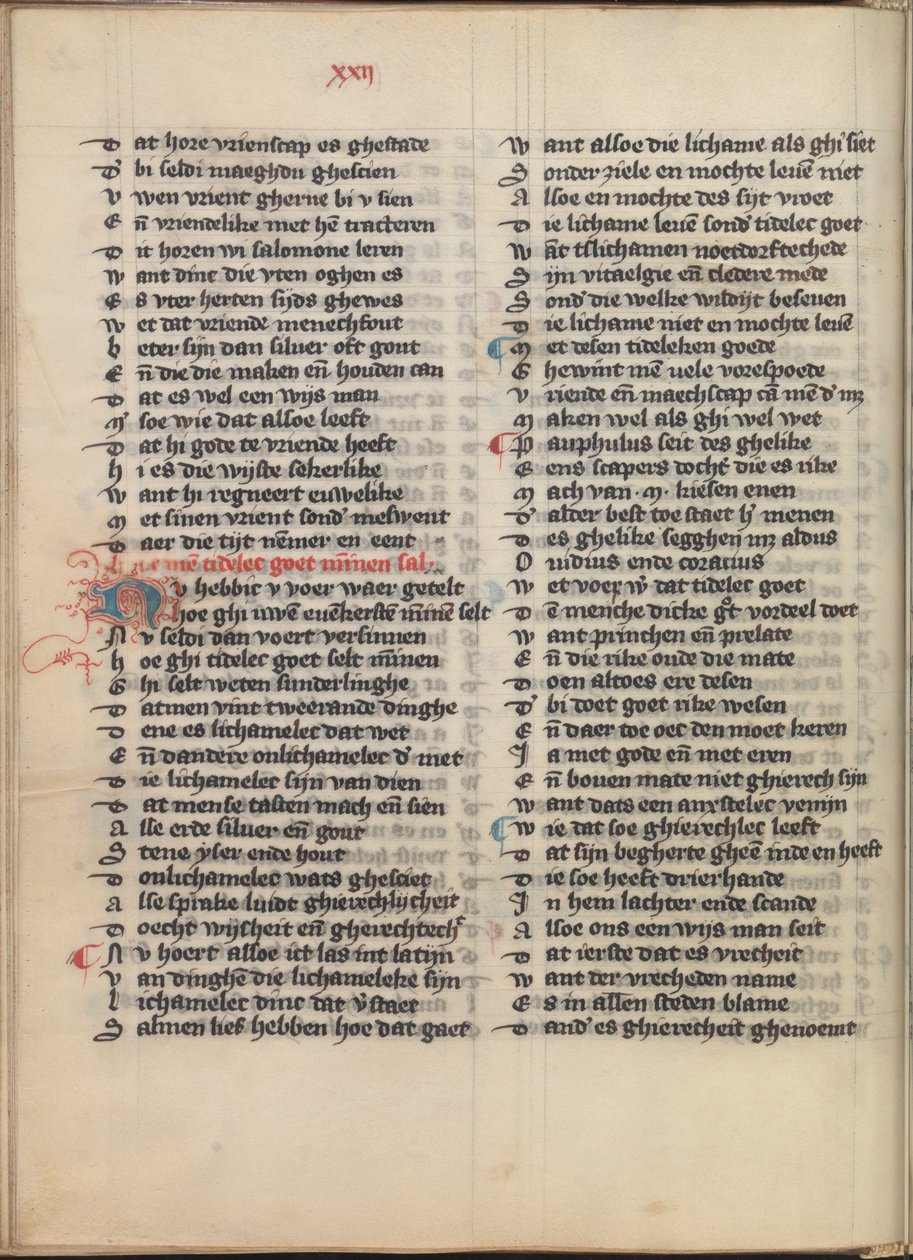 xxij
D at hore vrienscap es ghestade
D' bi seldi maeghdu ghescien
V wen vrient gherne bi v sien
E n̄ vriendelike met hē tracteren
D it horen wi salomone leren
W ant dinc die vten oghen es
E s vter herten sijds ghewes
W et dat vriende menechfout
b eter sijn dan siluer oft gout
E n̄ die die maken en̄ houden can
D at es wel een wijs man
M soe wie dat alsoe leeft
D at hi gode te vriende heeft
h i es die wijste sekerlike
W ant hi regneert euwelike
M et sinen vrient sond' meswent
D aer die tijt nēmer en eent
h oe mē tidelec goet m̄inen sal
N v hebbic v voer waer getelt
hoe ghi uwē euēkerstē m̄inē selt
N v seldi dan voert versinnen
h oe ghi tidelec goet selt m̄inen
G hi selt weten sunderlinghe
D atmen vint tweerande dinghe
D ene es lichamelec dat wet
E n̄ dandere onlichamelec d' met
D ie lichamelec sijn van dien
D at mense tasten mach en̄ sien
A lse erde siluer en̄ gout
S tene yser ende hout
D onlichamelec wats ghesciet
A lse sprake luidt ghierechlijcheit
D oecht wijsheit en̄ gherechtech't
N v hoert alsoe ict las int latijn
V an dinghē die lichameleke sijn
l ichamelec dinc dat v'staet
S almen lief hebben hoe dat gaet
W ant alsoe die lichame als ghi siet
S onder ziele en mochte leuē niet
A lsoe en mochte des sijt vroet
D ie lichame leuē sond' tidelec goet
W āt tslichamen noetdorftechede
S ijn vitaelgie en̄ cledere mede
S ond' die welke wildijt beseuen
D ie lichame niet en mochte leuē
M et desen tideleken goede
G hewint mē vele vorespoede
V riende en̄ maechscap cā mē d' mz
M aken wel als ghi wel wet
P auphulus seit des ghelike
E ens scapers docht' die es rike
M ach van .M. kiesen enen
D' alder best toe staet h' menen
D es ghelike segghen mz aldus
O uidius ende coracius
W et voer w' dat tidelec goet
D ē menche dicke gōt vordeel doet
W ant princhen en̄ prelate
E n̄ die rike oude die mate
D oen altoes ere desen
D' bi doet goet rike wesen
E n̄ daer toe oec den moet keren
J a met gode en̄ met eren
E n̄ bouen mate niet ghierech sijn
W ant dats een anxstelec venijn
W ie dat soe ghierechlec leeft
D at sijn begherte gheē inde en heeft
D ie soe heeft drierhande
J n hem lachter ende scande
A lsoe ons een wijs man seit
D at ierste dat es vrecheit
W ant der vrecheden name
E s in allen steden blame
D and' es ghierecheit ghenoemt